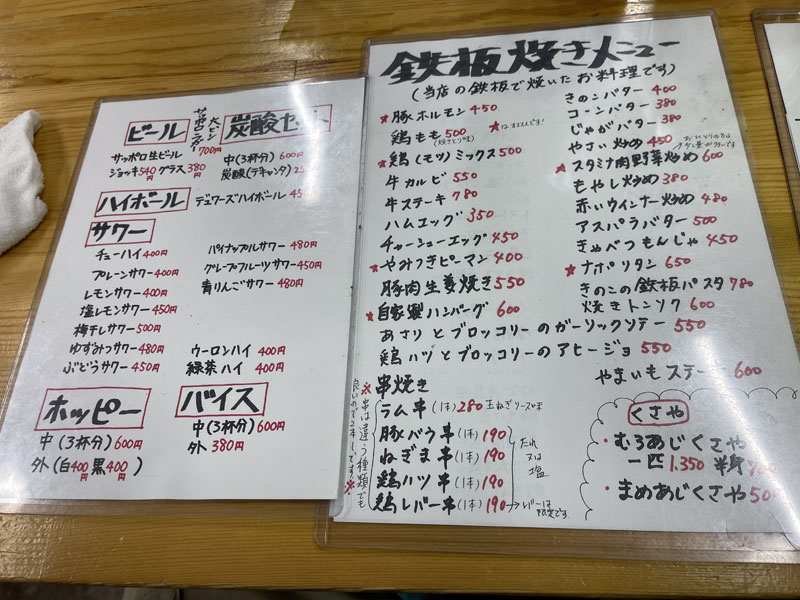 ビール
サッポロラガー
大ビン
700円
サッポロ生ビール
ジョッキ540円 グラス380円
炭酸セット
中(3杯分)600円
炭酸(デキャンタ)
ハイボール
デュワーズハイボール
サワー
チューハイ400円
プレーンサワー400円
レモンサワー400円
塩レモンサワー450円
梅干しサワー500円
ゆずみつサワー480円
ぶどうサワー450円
パイナップルサワー480円
グレープフルーツサワー450円
青りんごサワー480円
ウーロンハイ400円
緑茶ハイ400円
ホッピー
中(3杯分)600円
外(白400円 黒400円)
バイス
中(3杯分)600円
外 380円
鉄板焼きメニュー
(当店の鉄板で焼いたお料理です)
★豚ホルモン 450
★はオススメです!
鶏もも 500
(焼きとり味)
★鶏(モツ)ミックス 500
牛カルビ 550
牛ステーキ 780
ハムエッグ 350
チャーシューエッグ 450
★やみつきピーマン 400
豚肉生姜焼き 550
★自家製ハンバーグ 600
あさりとブロッコリーのガーリックソテー 550
鶏ハツとブロッコリーのアヒージョ 550
きのこバター 400
コーンバター 380
じゃがバター 380
やさい炒め 450
★スタミナ肉野菜炒め 600
もやし炒め 380
赤いウインナー炒め 480
アスパラバター 500
きゃべつもんじゃ 450
★ナポリタン 650
きのこの鉄板パスタ 780
焼きトンソク 600
やまいもステーキ 600
串焼き
※串は違う種類でも
良いので2本〜です※
ラム串(1本)280 玉ねぎソース味
豚バラ串(1本)190
ねぎま串(1本)190
鶏ハツ串(1本)190
鶏レバー串(1本)190
たれ
又は
塩
→レバーは
限定です
くさや
・むろあじくさや
一匹1.350 半身
・まめあじくさや